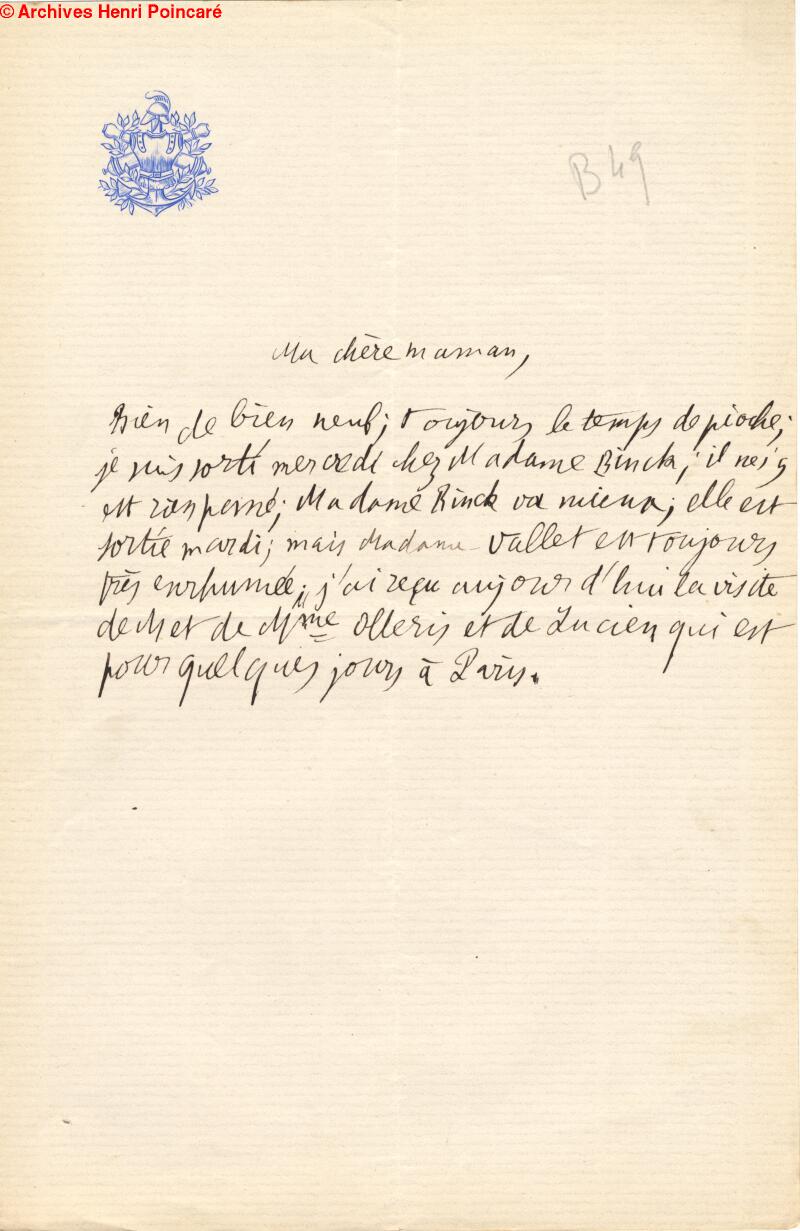 © Archives Henri Poincaré
B 49
Ma chère maman,
Rien de bien neuf; toujours le temps de pioche;
je suis sorti mercredi chez Madame Rinck; il ne s'y
est rien passé; Madame Rinck va mieux; elle est
sortie mardi; mais Madame Vallet est toujours
très enrhumée; j'ai reçu aujourd'hui la visite
de M et de Mme Olleris et de Lucien qui est
pour quelques jours à Paris.